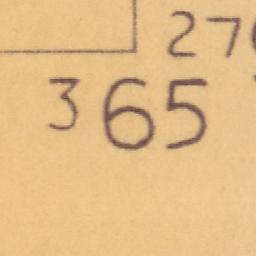 27
365